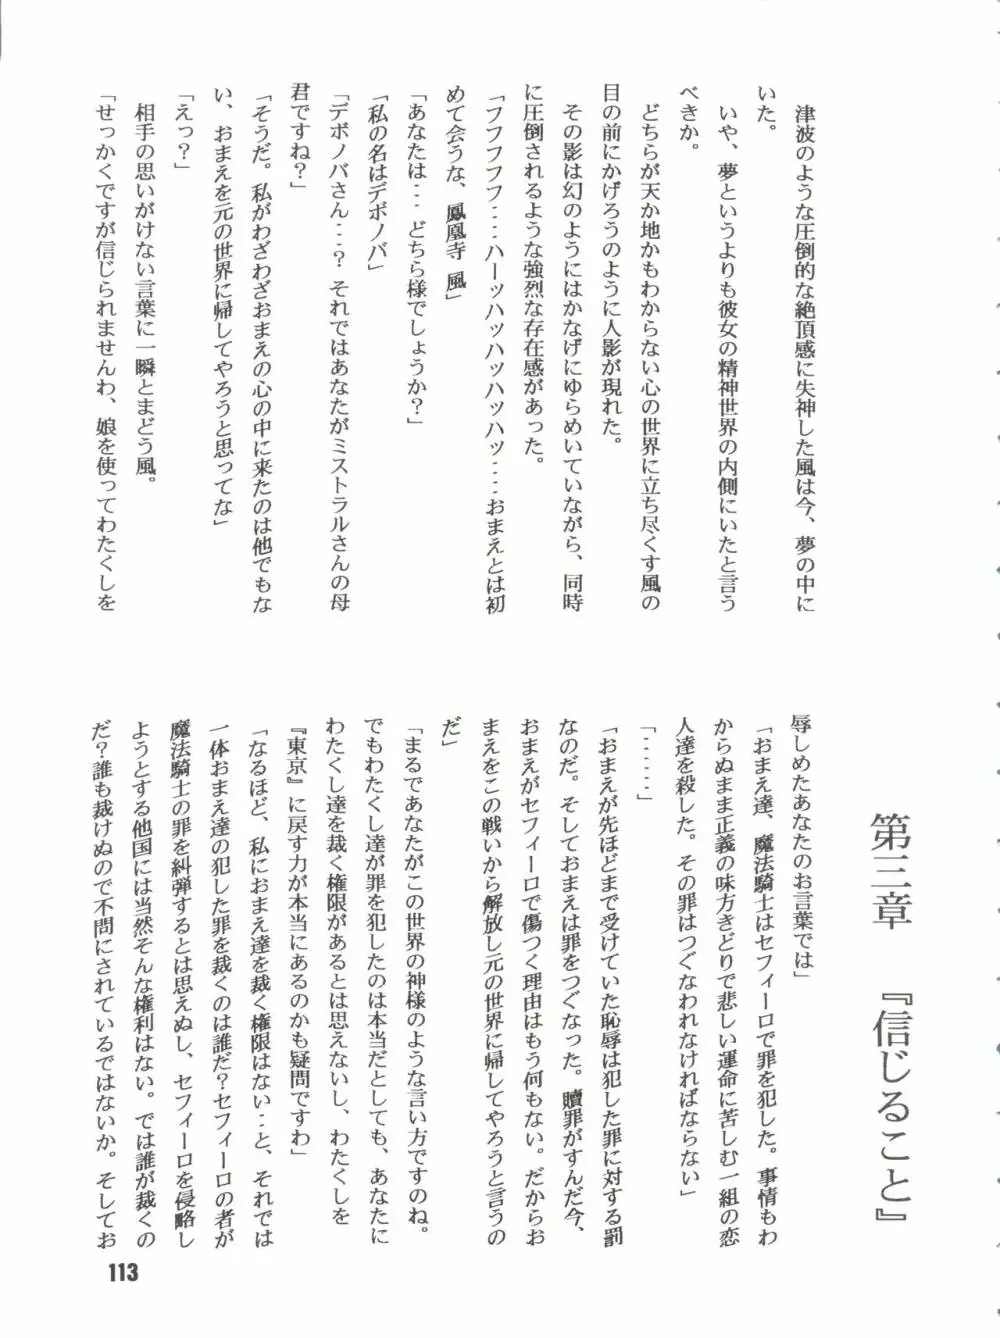 第三章　『信じること』
いや、夢というよりも彼女の精神世界の内側にいたと言う
べきか。
どちらが天か地かもわからない心の世界に立ち尽くす風の
目の前にかげろうのように人影が現れた。
その影は幻のようにはかなげにゆらめいていながら、同時
に圧倒されるような強烈な存在感があった。
「フフフフフ‥‥ハーッハッハッハッハッ‥‥おまえとは初
めて会うな、鳳凰寺 風」
「あなたは‥‥どちら様でしょうか？」
「私の名はデボノバ」
「デボノバさん‥‥？ それではあなたがミストラルさんの母
君ですね？」
「そうだ。私がわざわざおまえの心の中に来たのは他でもな
い、おまえを元の世界に帰してやろうと思ってな」
「えっ？」
相手の思いがけない言葉に一瞬とまどう風。
「おまえ達、魔法騎士はセフィーロで罪を犯した。事情もわ
からぬまま正義の味方きどりで悲しい運命に苦しむ一組の恋
人達を殺した。その罪はつぐなわれなければならない」
「‥‥‥‥」
なのだ。そしておまえは罪をつぐなった。贖罪がすんだ今、
おまえがセフィーロで傷つく理由はもう何もない。だからお
まえをこの戦いから解放し元の世界に帰してやろうと言うの
だ」
「まるであなたがこの世界の神様のような言い方ですのね。
でもわたくし達が罪を犯したのは本当だとしても、あなたに
わたくし達を裁く権限があるとは思えないし、わたくしを
『東京』に戻す力が本当にあるのかも疑問ですわ」
「なるほど、私におまえ達を裁く権限はない‥‥と、それでは
一体おまえ達の犯した罪を裁くのは誰だ？セフィーロの者が
魔法騎士の罪を糾弾するとは思えぬし、セフィーロを侵略し
ようとする他国には当然そんな権利はない。では誰が裁くの
だ？誰も裁けぬので不問にされているではないか。そしてお
113